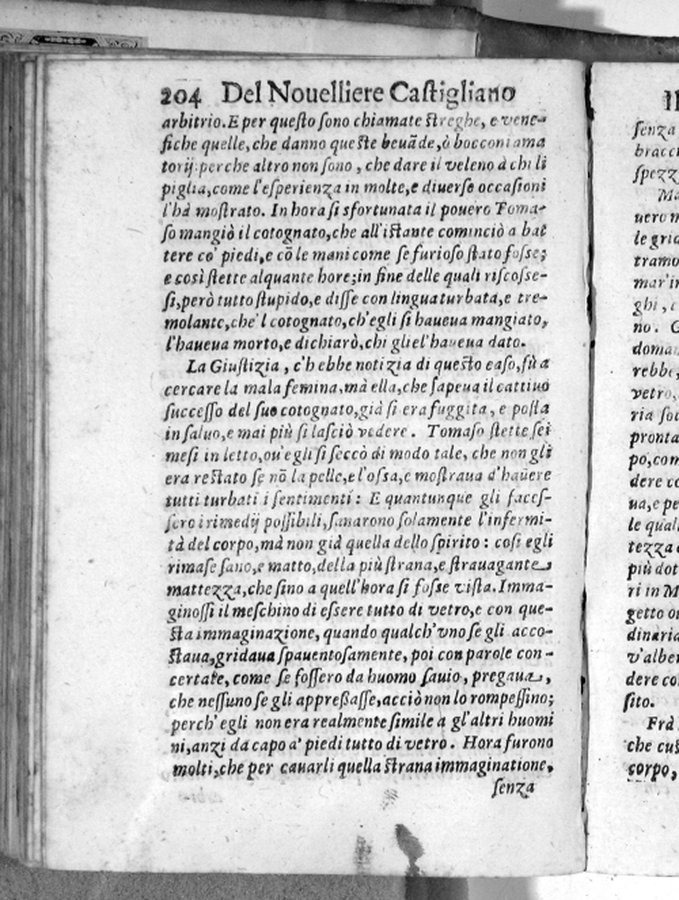 204 Del Nouelliere Castigliano
arbitrio. E per questo sono chiamate streghe, e vene-
fiche quelle, che danno queste beuãde, ò bocconi ama
torij: perche altro non sono, che dare il veleno à chi li
piglia, come l'esperienza in molte, e diuerse occasioni
l'hà mostrato. In hora si sfortunata il pouero Toma-
so mangiò il cotognato, che all'istante cominciò a bat
tere co' piedi, e cõ le mani come se furioso stato fosse;
e così stette alquante hore; in fine delle quali riscosse-
si, però tutto stupido, e disse con lingua turbata, e tre-
molante, che'l cotognato, ch'egli si haueua mangiato,
l'haueua morto, e dichiarò, chi gliel'haueua dato.
La Giustizia, c'h ebbe notizia di questo caso, fù a
cercare la mala femina, mà ella, che sapeua il cattiuo
successo del suo cotognato, già si era fuggita, e posta
in saluo, e mai più si lasciò vedere. Tomaso stette sei
mesi in letto, ou'egli si seccò di modo tale, che non gli
era restato se nõ la pelle, e l'ossa, e mostraua d'hauere
tutti turbati i sentimenti: E quantunque gli faces-
sero i rimedij possibili, sanarono solamente l'infermi-
tà del corpo, mà non già quella dello spirito: così egli
rimase sano, e matto, della più strana, e strauagante
mattezza, che sino a quell'hora si fosse vista. Imma-
ginossi il meschino di essere tutto di vetro, e con que-
sta immaginazione, quando qualch'vno se gli acco-
staua, gridaua spauentosamente, poi con parole con-
certate, come se fossero da huomo sauio, pregaua,
che nessuno se gli appressasse, acciò non lo rompessino;
perch'egli non era realmente simile a gl'altri huomi
ni, anzi da capo a' piedi tutto di vetro. Hora furono
molti, che per cauarli quella strana immaginatione,
senza
senza
bracci
spezz
Ma
uero m
le grid
tramo
mar'in
ghi, c
no. G
doman
rebbe,
vetro,
ria so
pronta
po, com
dere co
ua, e pe
le qual
tezza
più dot
ri in M
getto o
dinaria
v'alber
dere co
sito.
Frà
che cu
corpo,